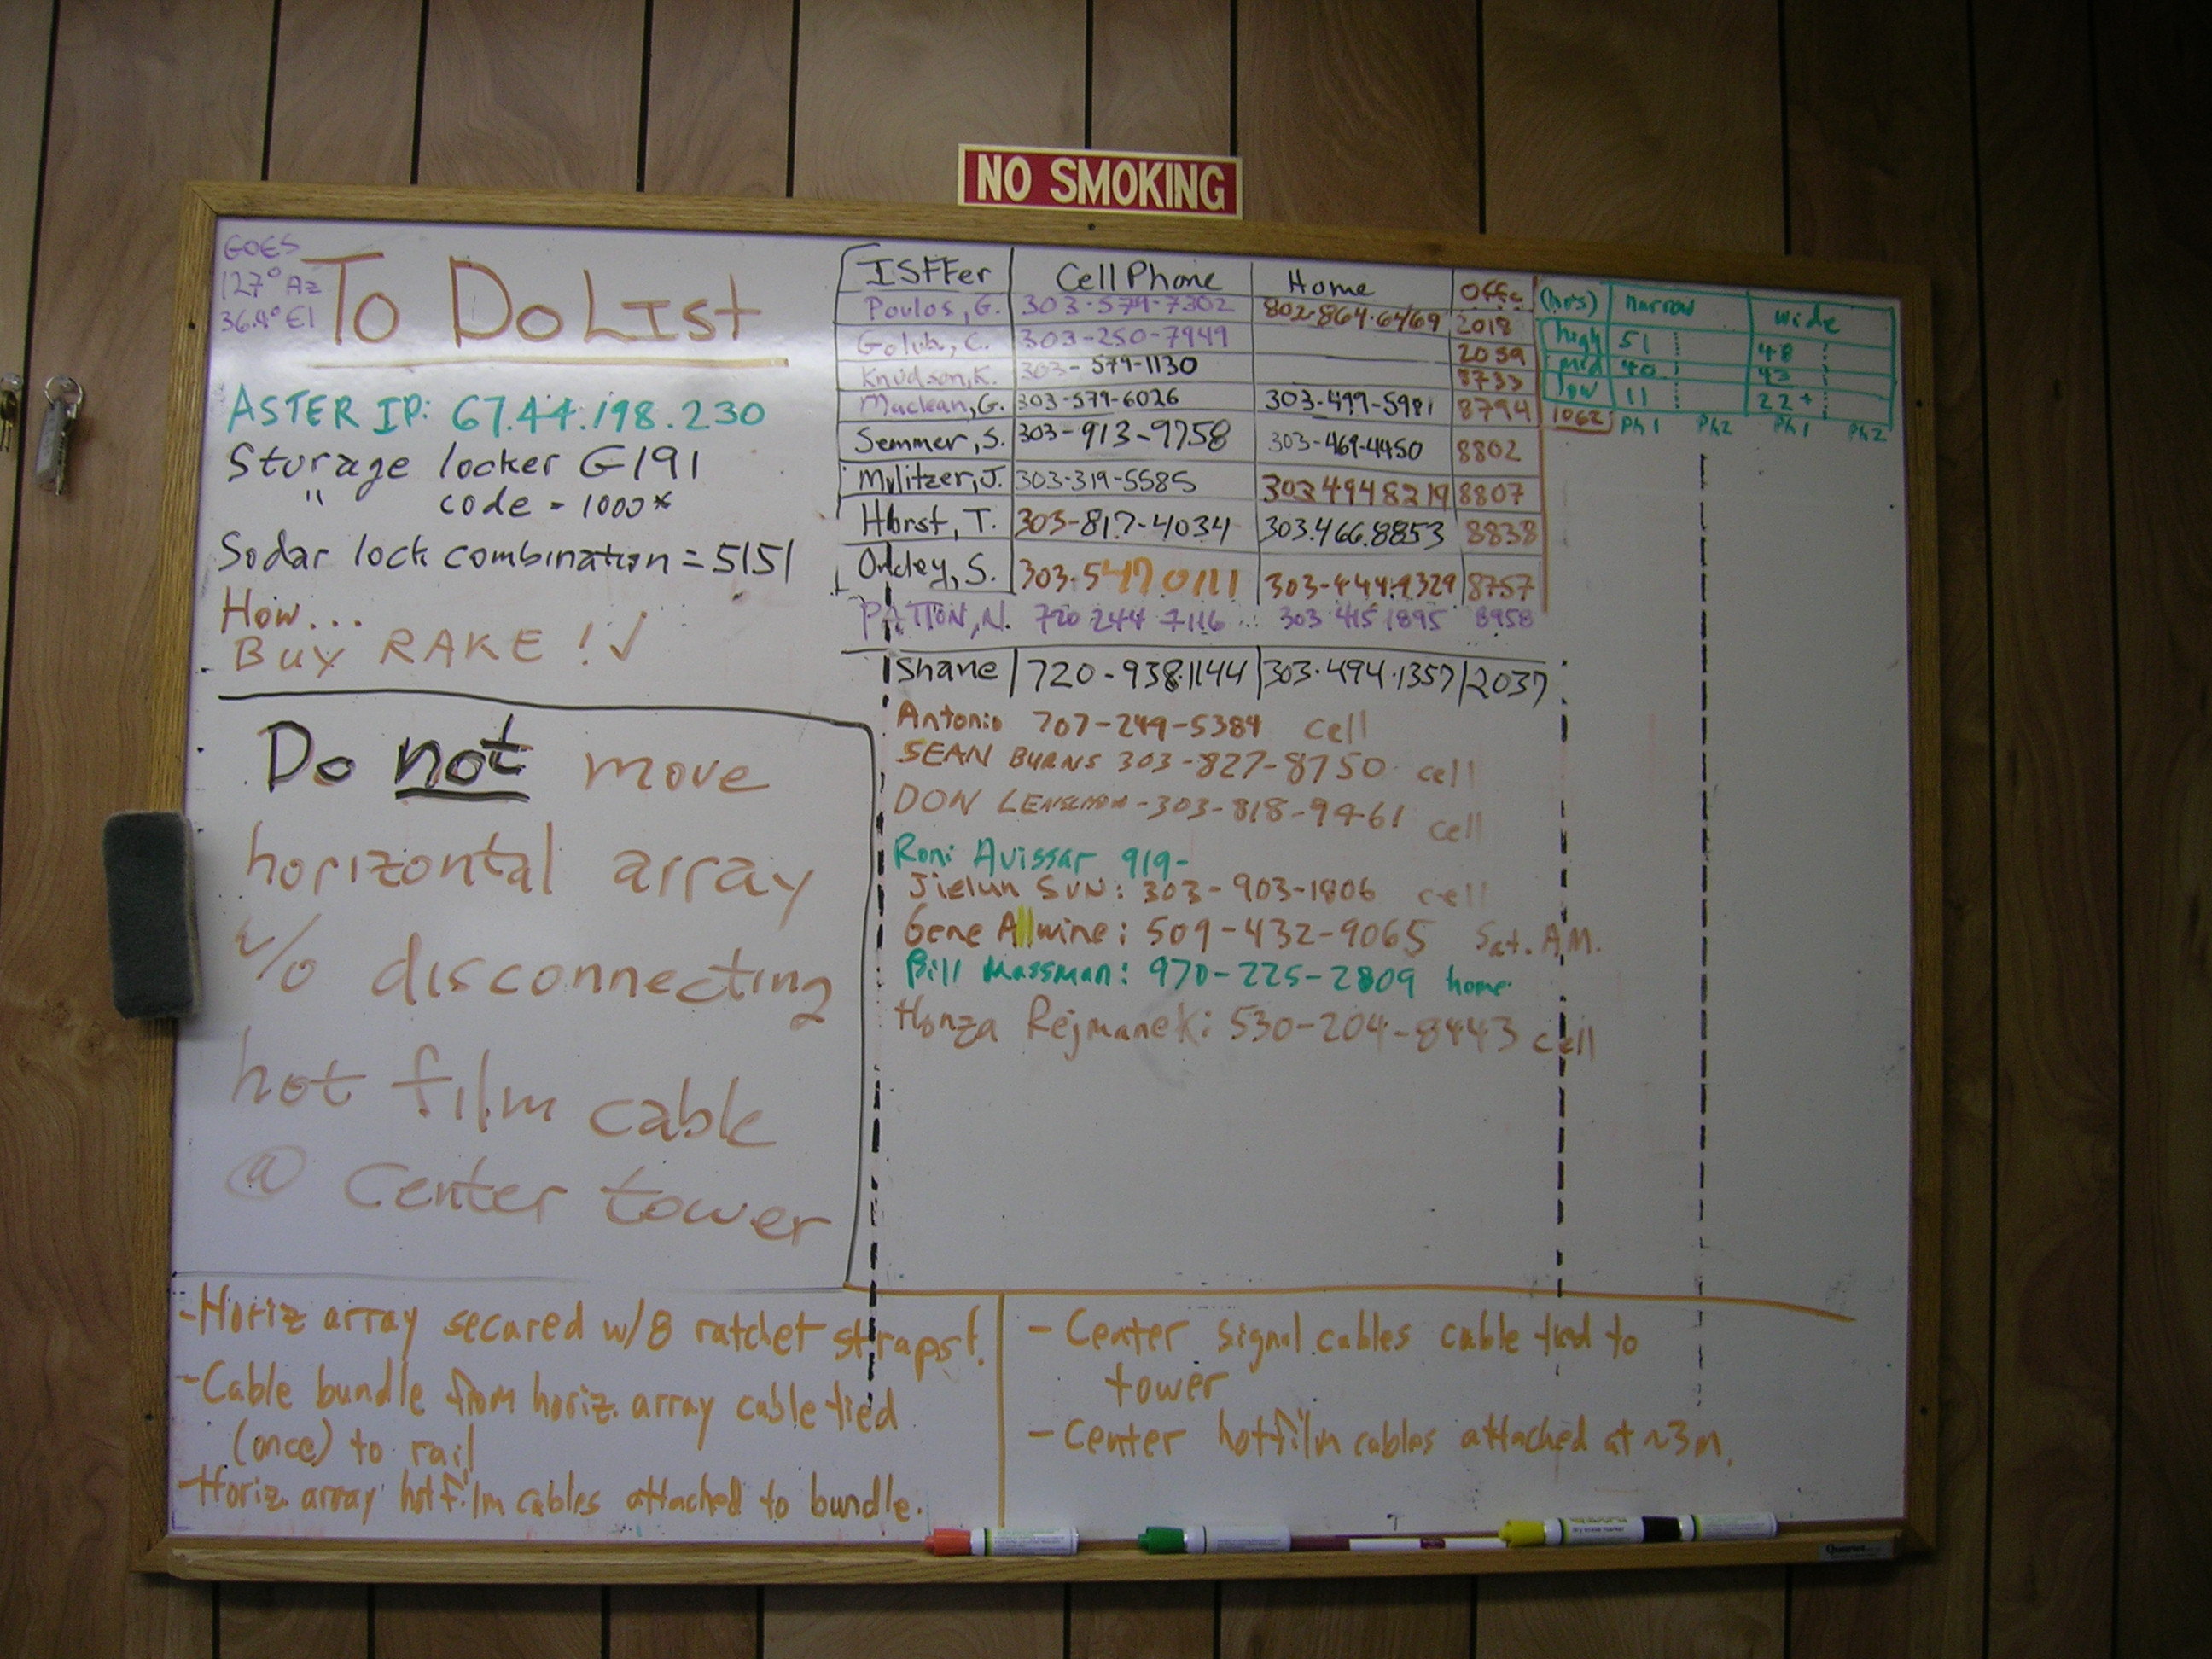 NO SMOKING
GOES
127° Az
36.9° El
To Do List
ASTER IP: 67.44.198.230
Storage locker G191
" code - 1000*
Sodar lock combination = 5151
How...
BUY RAKE! ✓
Do not move
horizontal array
w/o disconnecting
hot film cable
@ center tower
ISFFer Cell Phone Home Offc
Poulos, G. 303-579-7302 802-864-6469 2018
Golub, C. 303-250-7949 2059
Knudson, K. 303-579-1130 8733
Maclean, G. 303-579-6026 303-499-5981 8794 1062
Semmer, S. 303-913-9758 303-469-4450 8802
Militzer, J. 303-319-5585 303 494 8219 8807
Horst, T. 303-817-4034 303.466.8853 8838
Oncley, S. 303-547 0111 303-444-9329 8757
PATTON, N. 720 244 7116 303 415 1895 8958
Shane 720-938-1144 303.494.1357 2037
Antonio 707-249-5384 cell
SEAN BURNS 303-827-8750 cell
DON 303-818-9461 cell
Roni Avissar 919-
Jielun SUN: 303-903-1806 cell
Gene Allwine: 509-432-9065 Sat. A.M.
Bill Massman: 970-225-2809 home
Honza Rejmanek: 530-204-8443 cell
(hrs) narrow wide
high 51 48
med 40 43
low 11 22+
Ph1 Ph2 Ph1 Ph2
- Horiz array secured w/8 ratchet straps!
- Cable bundle from horiz. array cable tied
(once) to rail
- Horiz. array hotfilm cables attached to bundle.
- Center signal cables cable tied to
tower
- Center hotfilm cables attached at ~3m.
Quartet